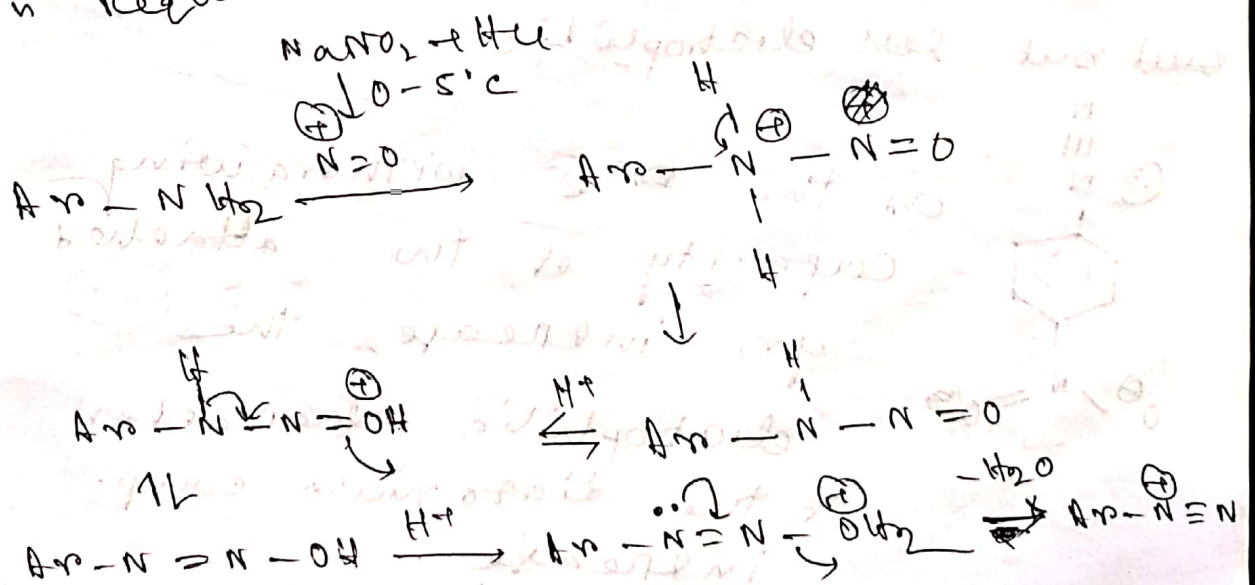 NaNO2 + HCl
↓ 0-5°C
⊕
N=O
Ar-NH2 →
H
Ar-N⊕-N=O
H
↓
H
Ar-N-N=OH ⊕
H+
⇌
H
Ar-N-N=O
Ar-N=N-OH
H+
→
Ar-N̈=N-OH2 ⊕
-H2O
→
Ar-N⊕≡N